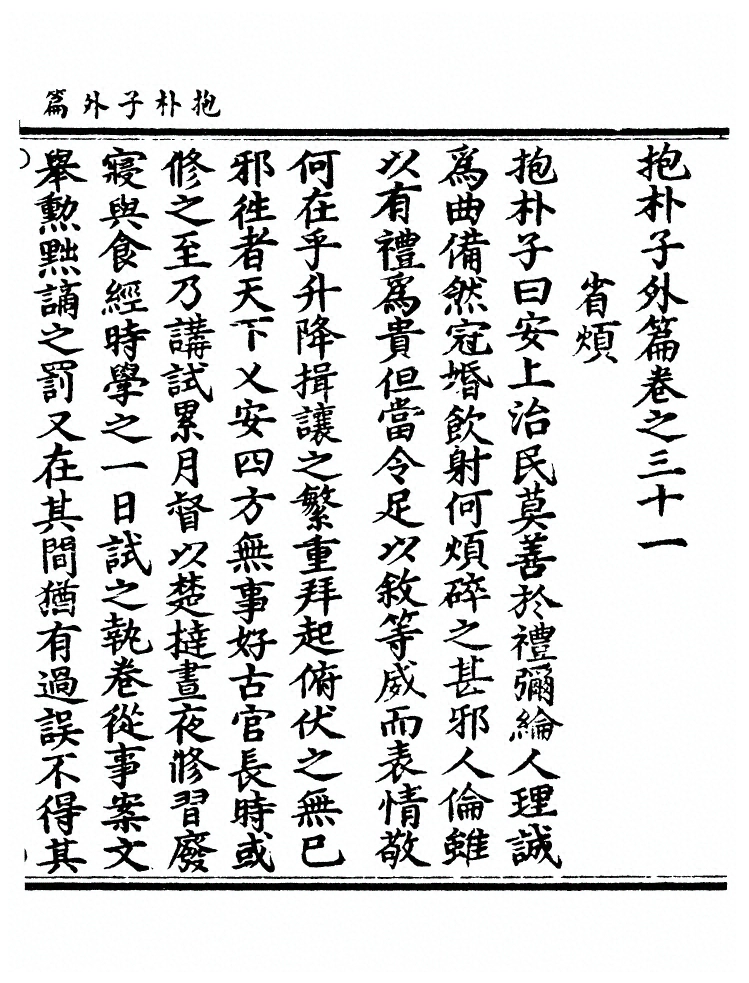 抱朴子外篇
抱朴子外篇卷之三十一
省煩
抱朴子曰安上治民莫善於禮彌綸人理誠
爲曲備然冠婚飲射何煩碎之甚邪人倫雖
以有禮爲貴但當令足以敘等威而表情敬
何在乎升降揖讓之繁重拜起俯伏之無已
邪徃者天下乂安四方無事好古官長時或
修之至乃講試累月督以楚撻晝夜修習廢
寢與食經時學之一日試之執卷從事案文
舉動黜謫之罰又在其間猶有過誤不得其